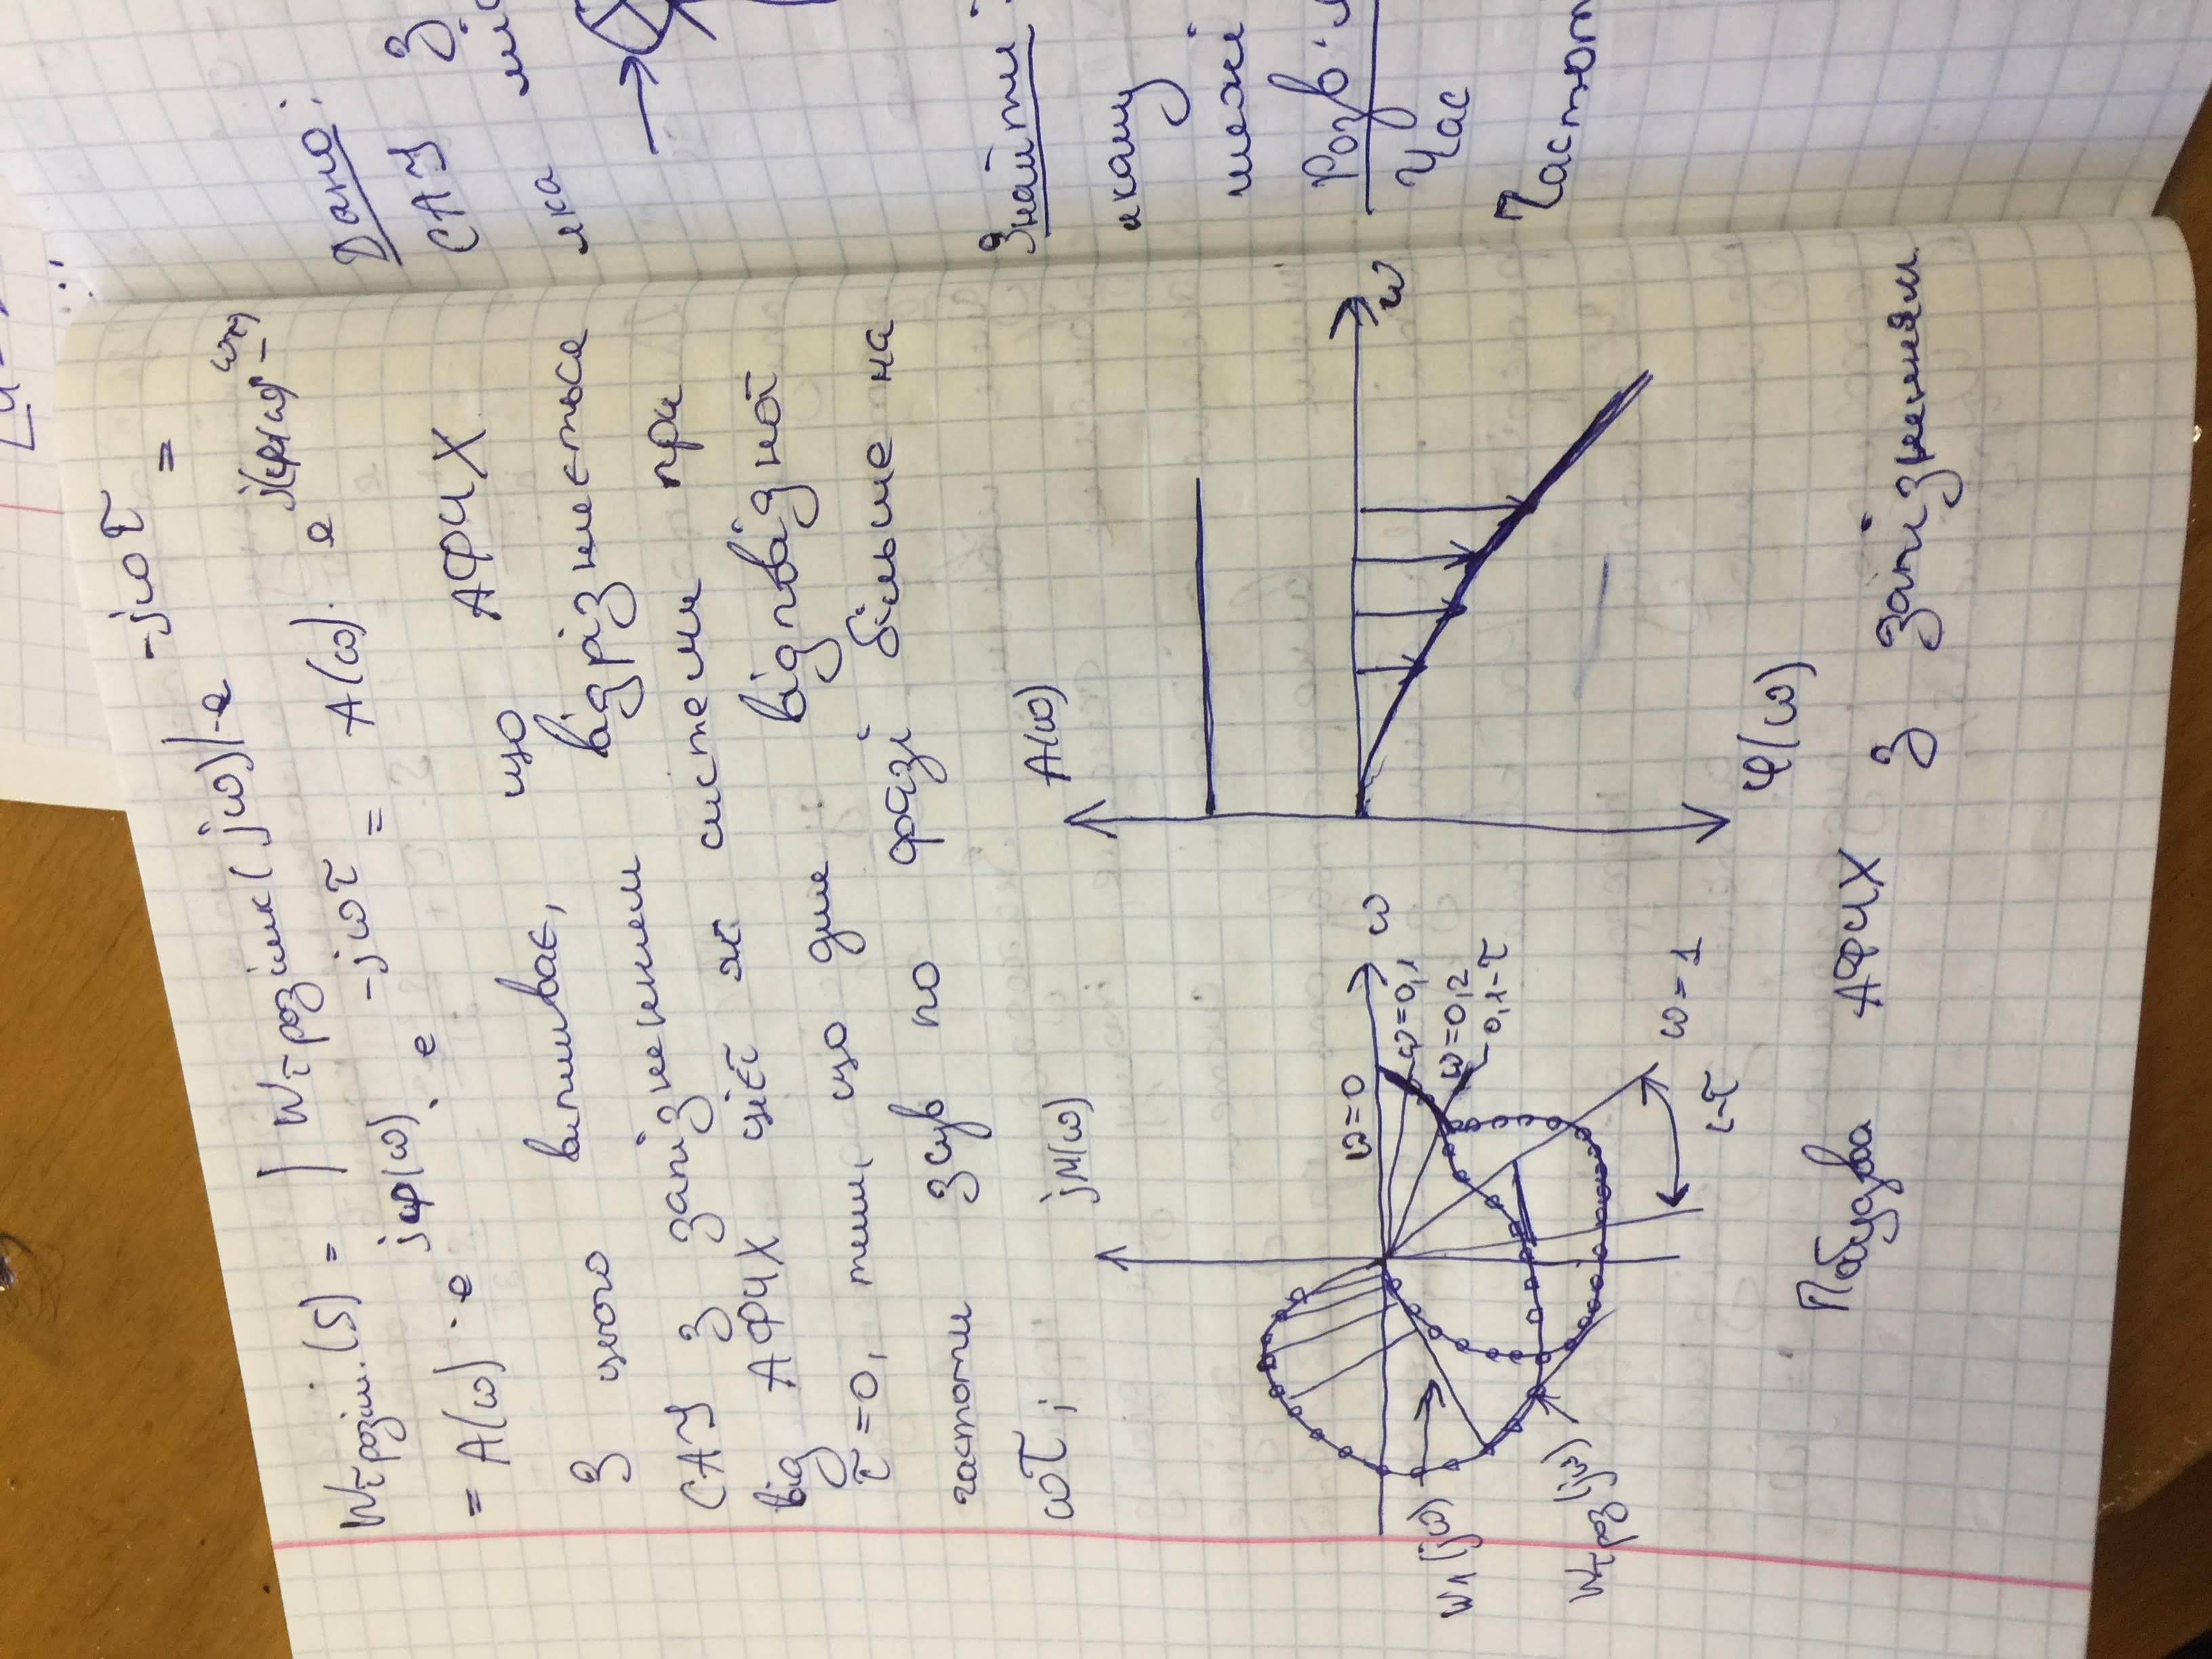 Wτ розім.(S) = | Wτ розімк(jω)|-e^-jωτ =
= A(ω) · e^jφ(ω) · e^-jωτ = A(ω)· e^j(φ(ω) - ωτ)
З цього випливає, що АФЧХ
САУ з запізненням відрізняється
від АФЧХ цієї ж системи при
τ=0, тим, що для відповідної
частоти зсув по фазі більше на
ωτ;
jM(ω)
A(ω)
ω=0
ω
ω=0,1
ω=0,2
0,1-τ
W1(jω)
Wτ роз(jω)
ω=1
1-τ
ω
φ(ω)
Побудова АФЧХ з запізненням.
Дано:
САУ з
яка
Знайти
якому
межі
Розв'я
Час
Частот